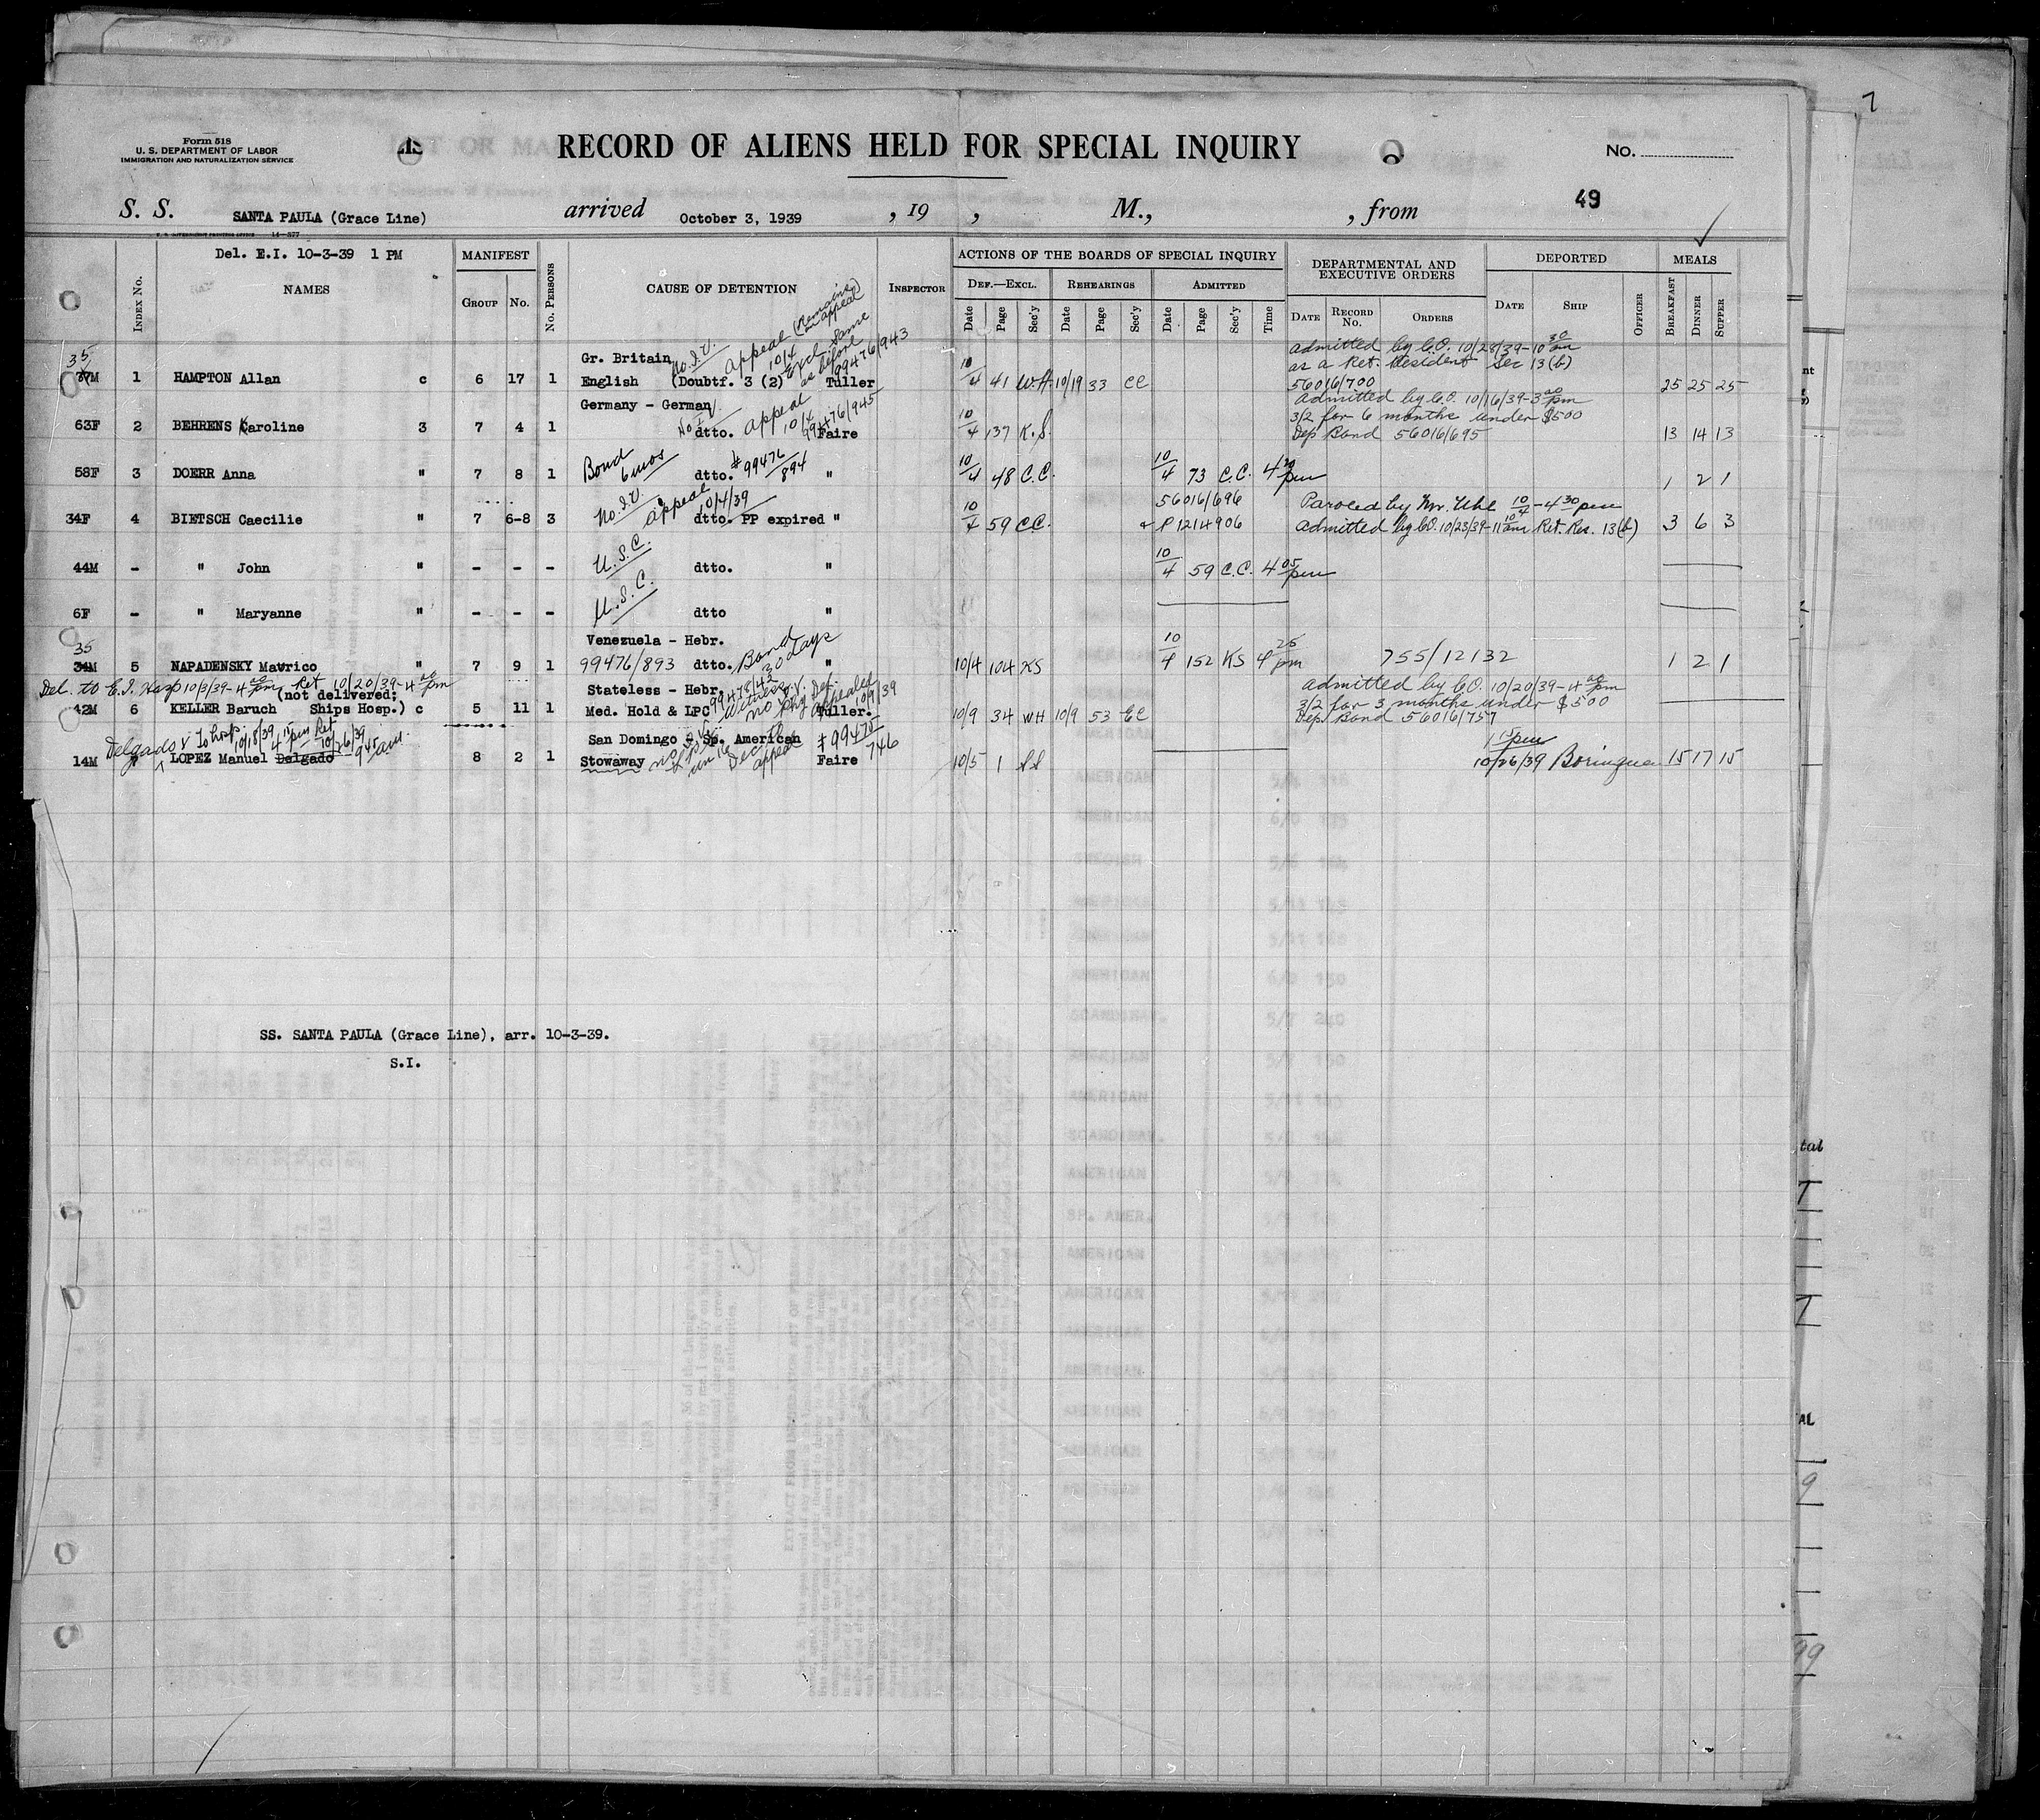 Form 518
U. S. DEPARTMENT OF LABOR
IMMIGRATION AND NATURALIZATION SERVICE
RECORD OF ALIENS HELD FOR SPECIAL INQUIRY
No.
49
S. S. SANTA PAULA (Grace Line) arrived October 3, 1939 , 19 , M., , from
Del. E.I. 10-3-39 1 PM
INDEX No. NAMES MANIFEST GROUP No. No. PERSONS CAUSE OF DETENTION INSPECTOR
ACTIONS OF THE BOARDS OF SPECIAL INQUIRY
DEF.—EXCL. REHEARINGS ADMITTED
Date Page Sec'y Date Page Sec'y Date Page Sec'y Time
DEPARTMENTAL AND EXECUTIVE ORDERS
DATE RECORD No. ORDERS
DEPORTED
DATE SHIP OFFICER
MEALS
BREAKFAST DINNER SUPPER
Gr. Britain No. I.V. Appeal 10/4 (Remains on appeal) Excl. same as before 99476/943 admitted by C.O. 10/28/39-10 30 am
35
M 1 HAMPTON Allan c 6 17 1 English (Doubtf. 3 (2) Tuller 10/4 41 W.H 10/19 33 CC as a Ret. Resident Sec 13(b) 56016/700 25 25 25
Germany - German admitted by C.O. 10/16/39-3 00 pm
63F 2 BEHRENS Karoline 3 7 4 1 No I V dtto. appeal 10/4 99476/945 Faire 10/4 137 K.S. 3/2 for 6 months under $500 Dep Bond 56016/695 13 14 13
58F 3 DOERR Anna " 7 8 1 Bond 6 mos dtto. #99476/894 " 10/4 48 C.C. 10/4 73 C.C. 4 20 pm 1 2 1
No. I.V. appeal 10/4/39 56016/696 Paroled by Mr. Uhl 10/4-4 30 pm
34F 4 BIETSCH Caecilie " 7 6-8 3 dtto. PP expired " 10/4 59 C.C. + P1214906 admitted by C.O. 10/23/39-11 10 am Ret. Res. 13(b) 3 6 3
44M - " John " - - - U.S.C. dtto. " 10/4 59 C.C. 4 05 pm
6F - " Maryanne " - - - U.S.C. dtto "
Venezuela - Hebr.
35
34M 5 NAPADENSKY Maurico " 7 9 1 99476/893 dtto. Bond 30 days " 10/4 104 KS 10/4 152 KS 4 25 pm 755/12132 1 2 1
Del. to E.I. Hosp 10/3/39-4 00 pm Ret 10/20/39-4 00 pm
(not delivered; Stateless - Hebr. 99478/42 admitted by C.O. 10/20/39-4 00 pm
42M 6 KELLER Baruch Ships Hosp.) c 5 11 1 Med. Hold & LPC Witness no I.V. Def. Appealed 10/9/39 Tuller. 10/9 34 WH 10/9 53 CC 3/2 for 3 months under $500 Dep. Bond 56016/757
Delgado v To hosp 10/18/39 4 15 pm Ret 10/26/39 9 45 am. San Domingo - Sp. American #99475/746 1 15 pm
14M LOPEZ Manuel Delgado 8 2 1 Stowaway no I.V. un 16 appeal Faire 10/5 1 10/26/39 Borinquen 15 17 15
SS. SANTA PAULA (Grace Line), arr. 10-3-39.
S.I.